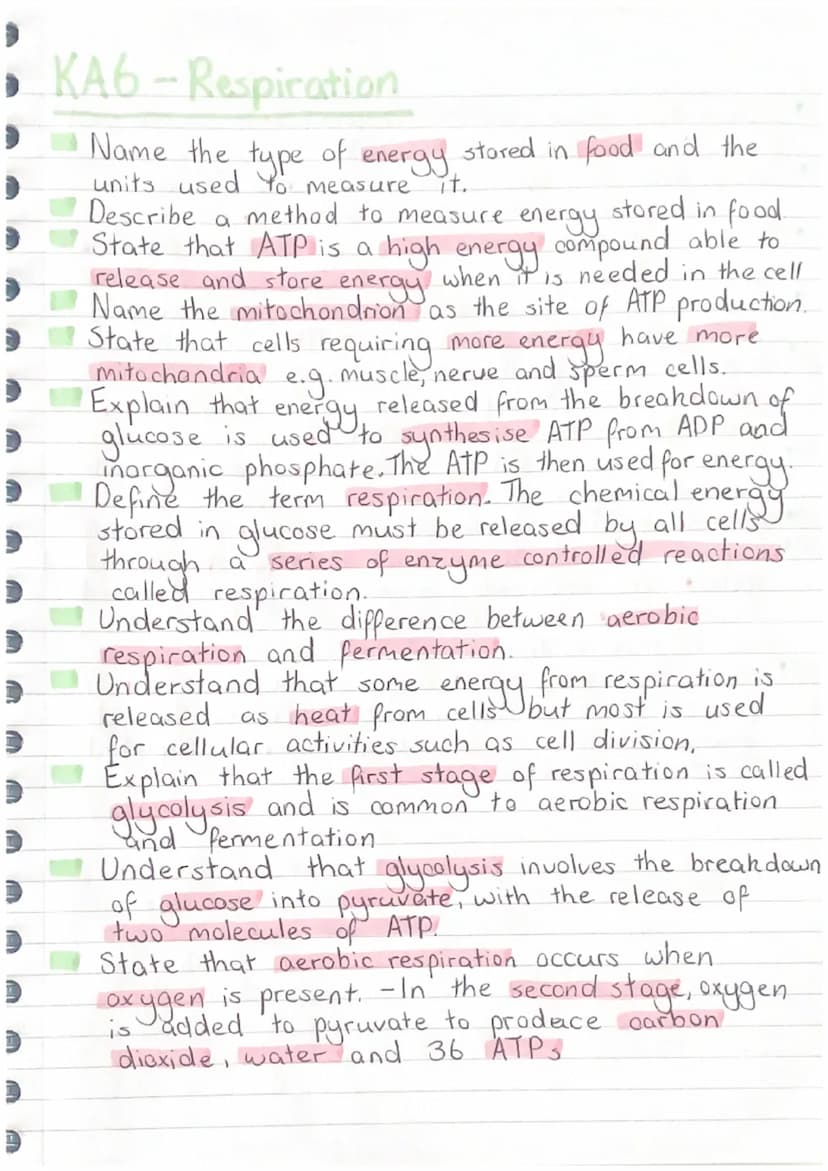 KA6 - Respiration
Name the type of energy stored in food and the
units used to measure it.
Describe a method to measure energy stored in food.
State that ATP is a high energy compound able to
release and store energy when it is needed in the cell
Name the mitochondrion as the site of ATP production.
State that cells requiring more energy have more
mitochondria e.g. muscle, nerve and sperm cells.
Explain that energy released from the breakdown of
glucose is used to synthesise ATP from ADP and
inorganic phosphate. The ATP is then used for energy.
Define the term respiration. The chemical energy
stored in glucose must be released by all cells
through a series of enzyme controlled reactions
called respiration.
Understand the difference between aerobic
respiration and fermentation.
Understand that some energy from respiration is
released as heat from cells but most is used
for cellular activities such as cell division,
Explain that the first stage of respiration is called
glycolysis and is common to aerobic respiration
and fermentation
Understand that glycolysis involves the breakdown
of glucose into pyruvate, with the release of
two molecules of ATP.
State that aerobic respiration occurs when
oxygen is present. -In the second stage, oxygen
is added to pyruvate to produce carbon
dioxide, water and 36 ATPs